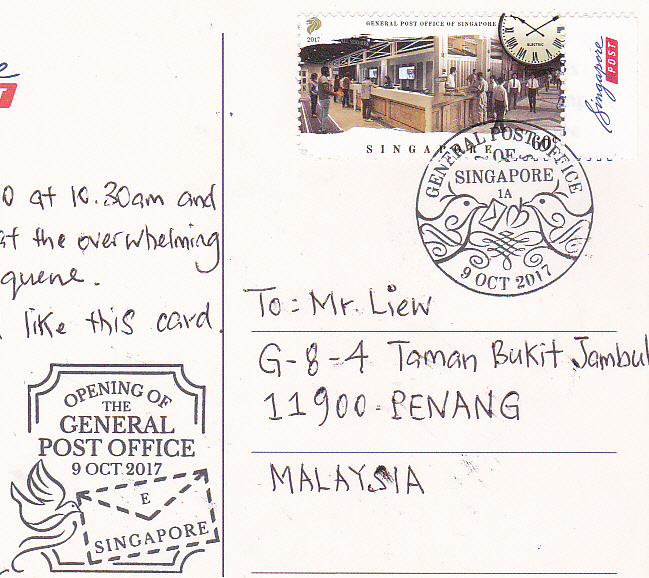 GENERAL POST OFFICE OF SINGAPORE
2017
ELECTRIC
Singapore
POST
SINGAPORE
60c
GENERAL POST OFFICE
OF
SINGAPORE
1A
9 OCT 2017
at 10.30am and
the overwhelming
queue.
like this card.
OPENING OF
THE
GENERAL
POST OFFICE
9 OCT 2017
E
SINGAPORE
To: Mr. Liew
G-8-4 Taman Bukit Jambul
11900 - PENANG
MALAYSIA